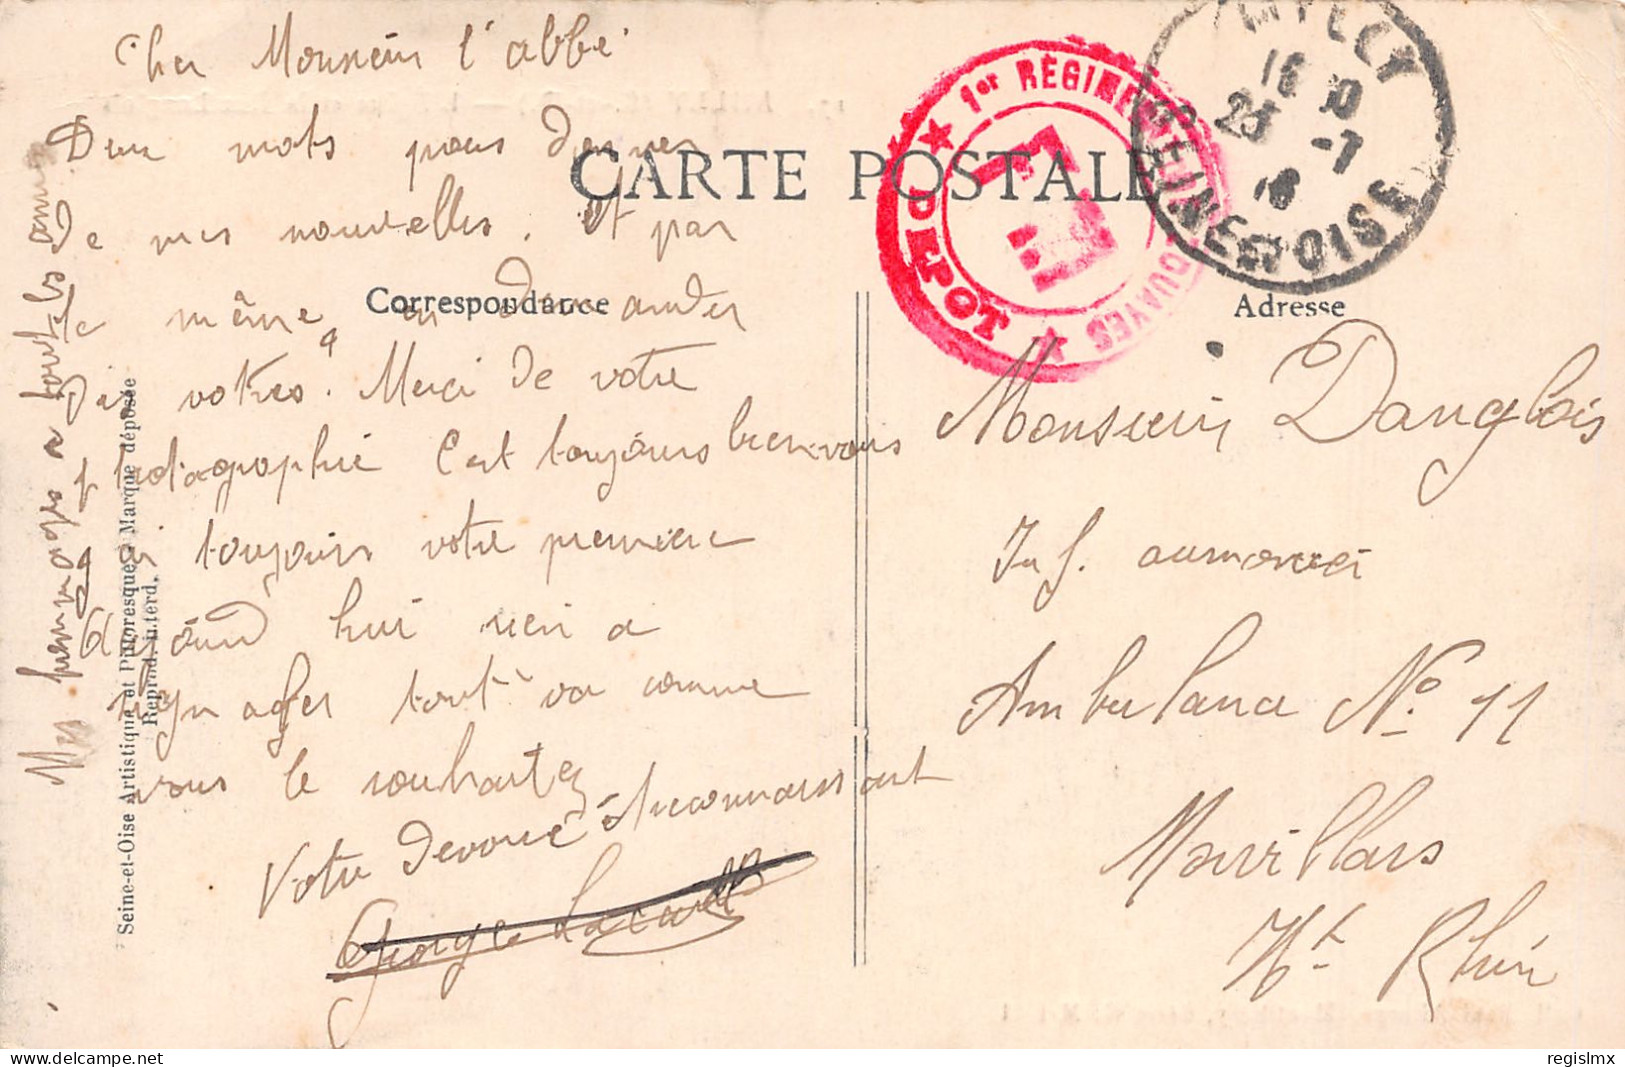 Cher Monsieur l'abbé
Deux mots pour donner
de mes nouvelles. Et par
le même en demander
des votres. Merci de votre
photographie C'est toujours bien vous
toujours votre première
aujourd hui rien a
signaler tout va comme
vous le souhaitez
Votre devoué & reconnaissant
Mes hommages a toutes les dames
CARTE POSTALE
Correspondance
Adresse
Seine-et-Oise Artistique et Pittoresque. Marque déposée
Reprod. interd.
★ 1er RÉGIMENT
DÉPOT ★
16 30
25 -7
16
SEINE ET OISE
Monsieur Danglois
Inf. aumonier
Ambulance No 11
Morvillars
Ht Rhin
delcampe.net
regislmx